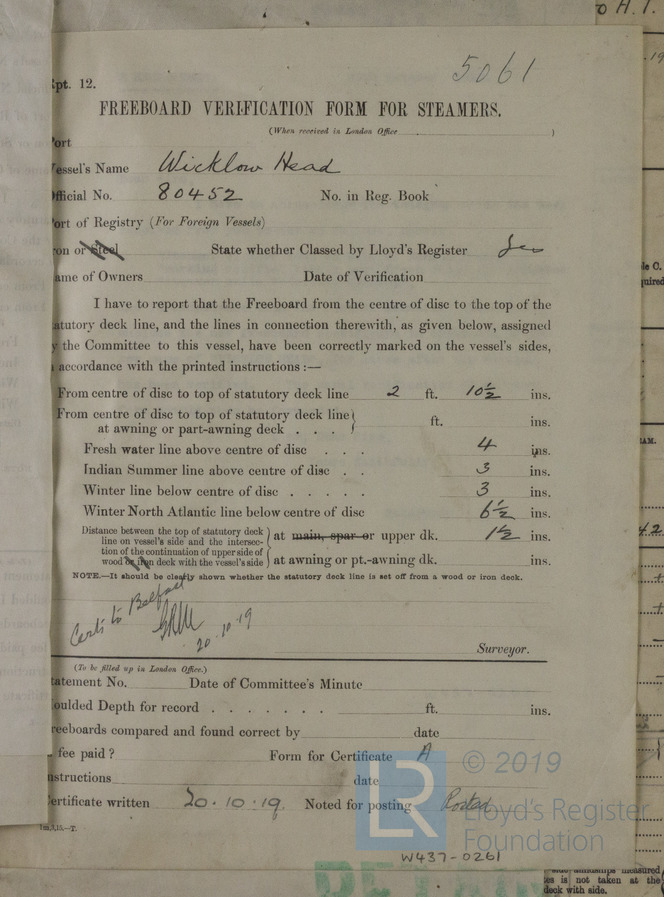 5061
pt. 12.
FREEBOARD VERIFICATION FORM FOR STEAMERS.
(When received in London Office )
ort
essel's Name Wicklow Head
fficial No. 80452 No. in Reg. Book
ort of Registry (For Foreign Vessels)
on or Steel State whether Classed by Lloyd's Register Yes
ame of Owners Date of Verification
I have to report that the Freeboard from the centre of disc to the top of the
atutory deck line, and the lines in connection therewith, as given below, assigned
y the Committee to this vessel, have been correctly marked on the vessel's sides,
accordance with the printed instructions :—
From centre of disc to top of statutory deck line 2 ft. 10½ ins.
From centre of disc to top of statutory deck line
at awning or part-awning deck . . . ft. ins.
Fresh water line above centre of disc . . . 4 ins.
Indian Summer line above centre of disc . . 3 ins.
Winter line below centre of disc . . . . . 3 ins.
Winter North Atlantic line below centre of disc 6½ ins.
Distance between the top of statutory deck
line on vessel's side and the intersec-
tion of the continuation of upper side of
wood or iron deck with the vessel's side
at main, spar or upper dk. 1½ ins.
at awning or pt.-awning dk. ins.
NOTE.—It should be clearly shown whether the statutory deck line is set off from a wood or iron deck.
Certs to Belfast
20.10.19
Surveyor.
(To be filled up in London Office.)
tatement No. Date of Committee's Minute
oulded Depth for record . . . . . . . ft. ins.
reeboards compared and found correct by date
fee paid? Form for Certificate A
nstructions date
ertificate written 20.10.19. Noted for posting Posted
W437-0261
© 2019
Lloyd's Register
Foundation
LR
DETAIN
side amidships measured
es is not taken at the
deck with side.